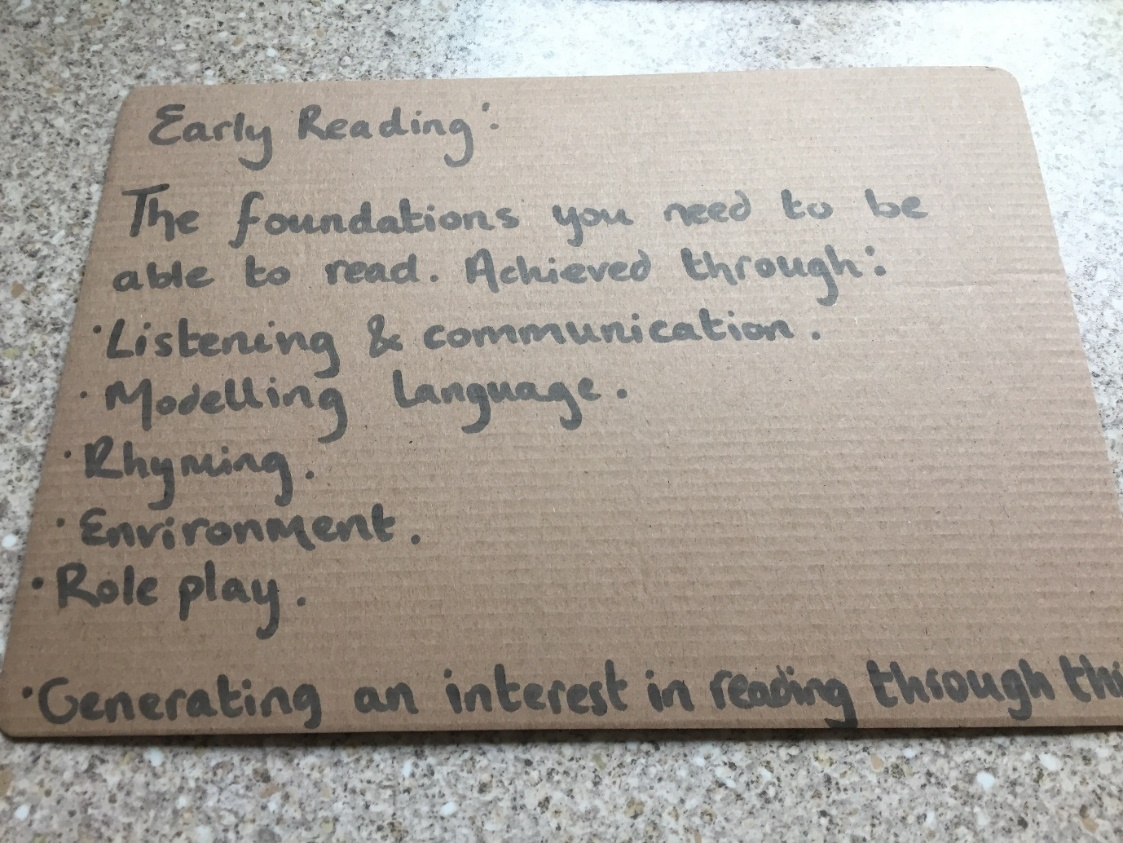 Early Reading:
The foundations you need to be
able to read. Achieved through:
• Listening & communication.
• Modelling language.
• Rhyming.
• Environment.
• Role play.
• Generating an interest in reading through